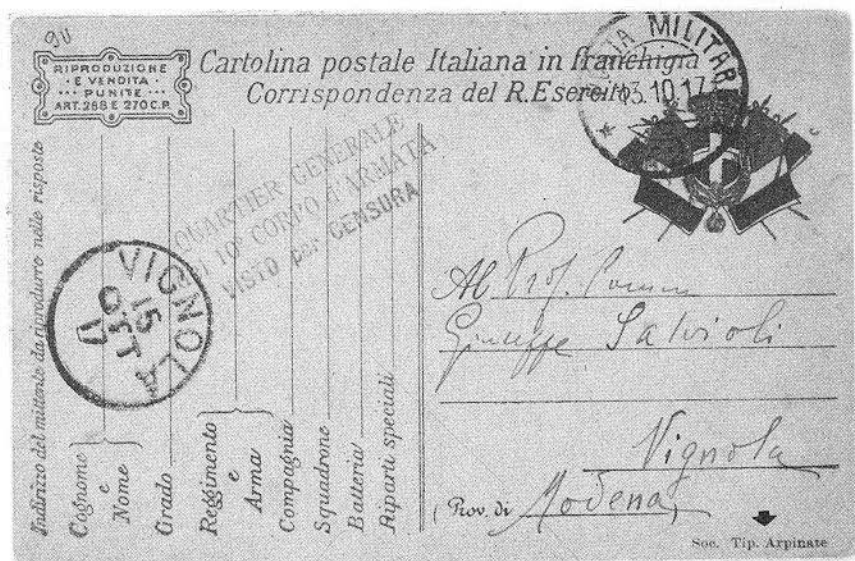 90
RIPRODUZIONE
· E VENDITA ·
··· PUNITE ···
ART. 268 E 270 C.P.
Cartolina postale Italiana in franchigia
Corrispondenza del R. Esercito
MILITARE
13.10.17
QUARTIER GENERALE
10° CORPO d'ARMATA
VISTO per CENSURA
VIGNOLA
15
OTT
17
Indirizzo del mittente da riprodurre nelle risposte
Cognome
e
Nome
Grado
Reggimento
e
Arma
Compagnia
Squadrone
Batteria
Riparti speciali
Al Prof.
Giuseppe Salvioli
Vignola
(Prov. di Modena)
Soc. Tip. Arpinate